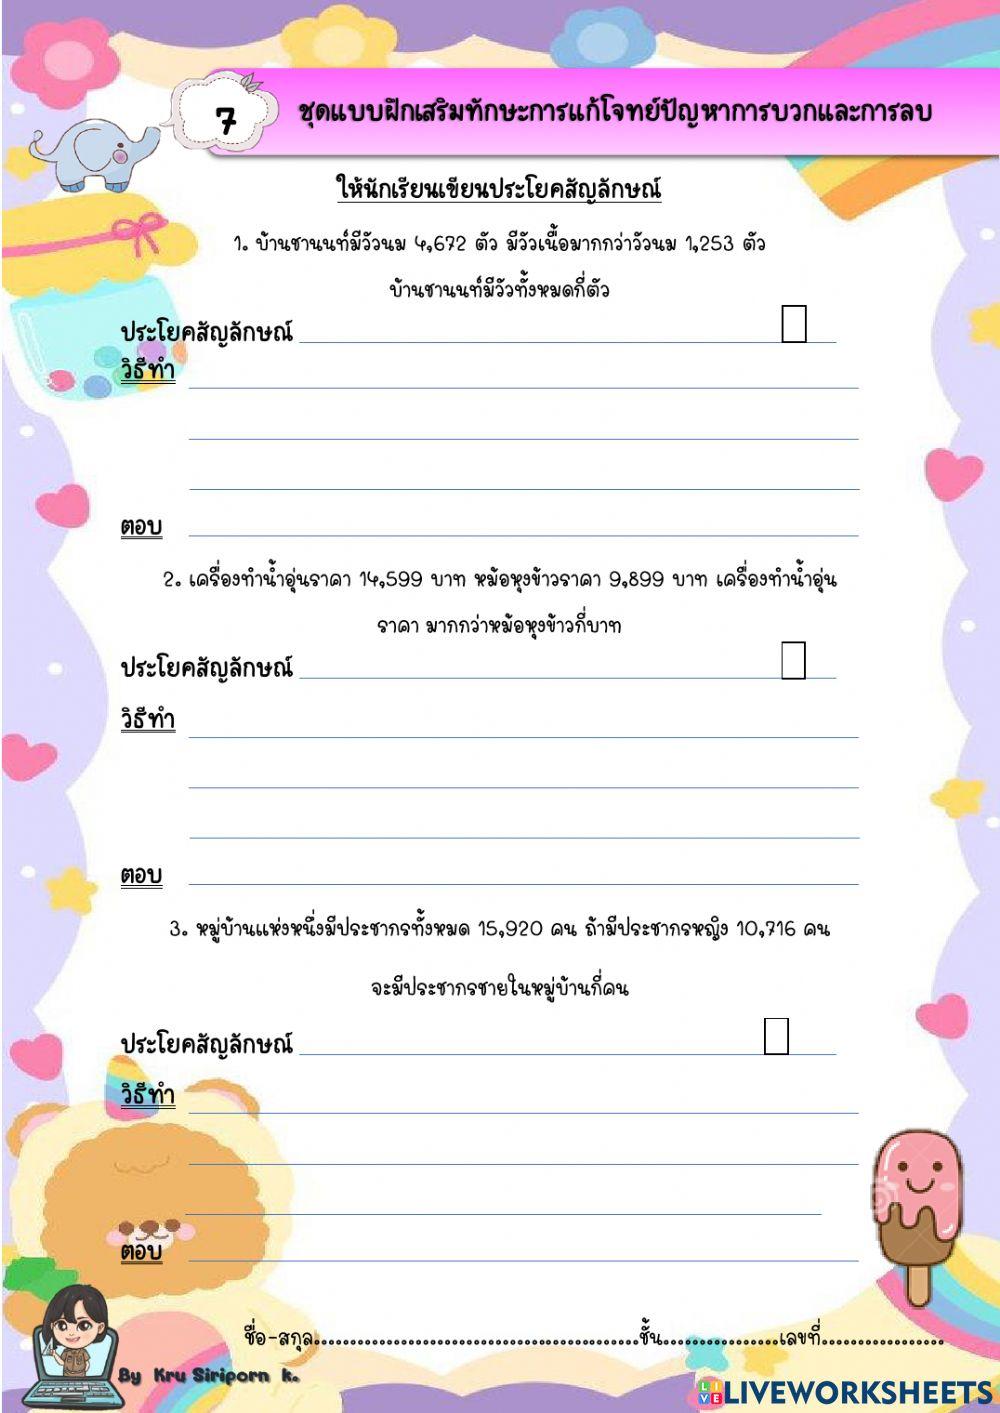 7
ชุดแบบฝึกเสริมทักษะการแก้โจทย์ปัญหาการบวกและการลบ
ให้นักเรียนเขียนประโยคสัญลักษณ์
1. บ้านชานนท์มีวัวนม 4,672 ตัว มีวัวเนื้อมากกว่าวัวนม 1,253 ตัว
บ้านชานนท์มีวัวทั้งหมดกี่ตัว
ประโยคสัญลักษณ์
วิธีทำ
ตอบ
2. เครื่องทำน้ำอุ่นราคา 14,599 บาท หม้อหุงข้าวราคา 9,899 บาท เครื่องทำน้ำอุ่น
ราคา มากกว่าหม้อหุงข้าวกี่บาท
ประโยคสัญลักษณ์
วิธีทำ
ตอบ
3. หมู่บ้านแห่งหนึ่งมีประชากรทั้งหมด 15,920 คน ถ้ามีประชากรหญิง 10,716 คน
จะมีประชากรชายในหมู่บ้านกี่คน
ประโยคสัญลักษณ์
วิธีทำ
ตอบ
ชื่อ-สกุล.............................................ชั้น................เลขที่.................
By Kru Siriporn k.
LIVE LIVEWORKSHEETS